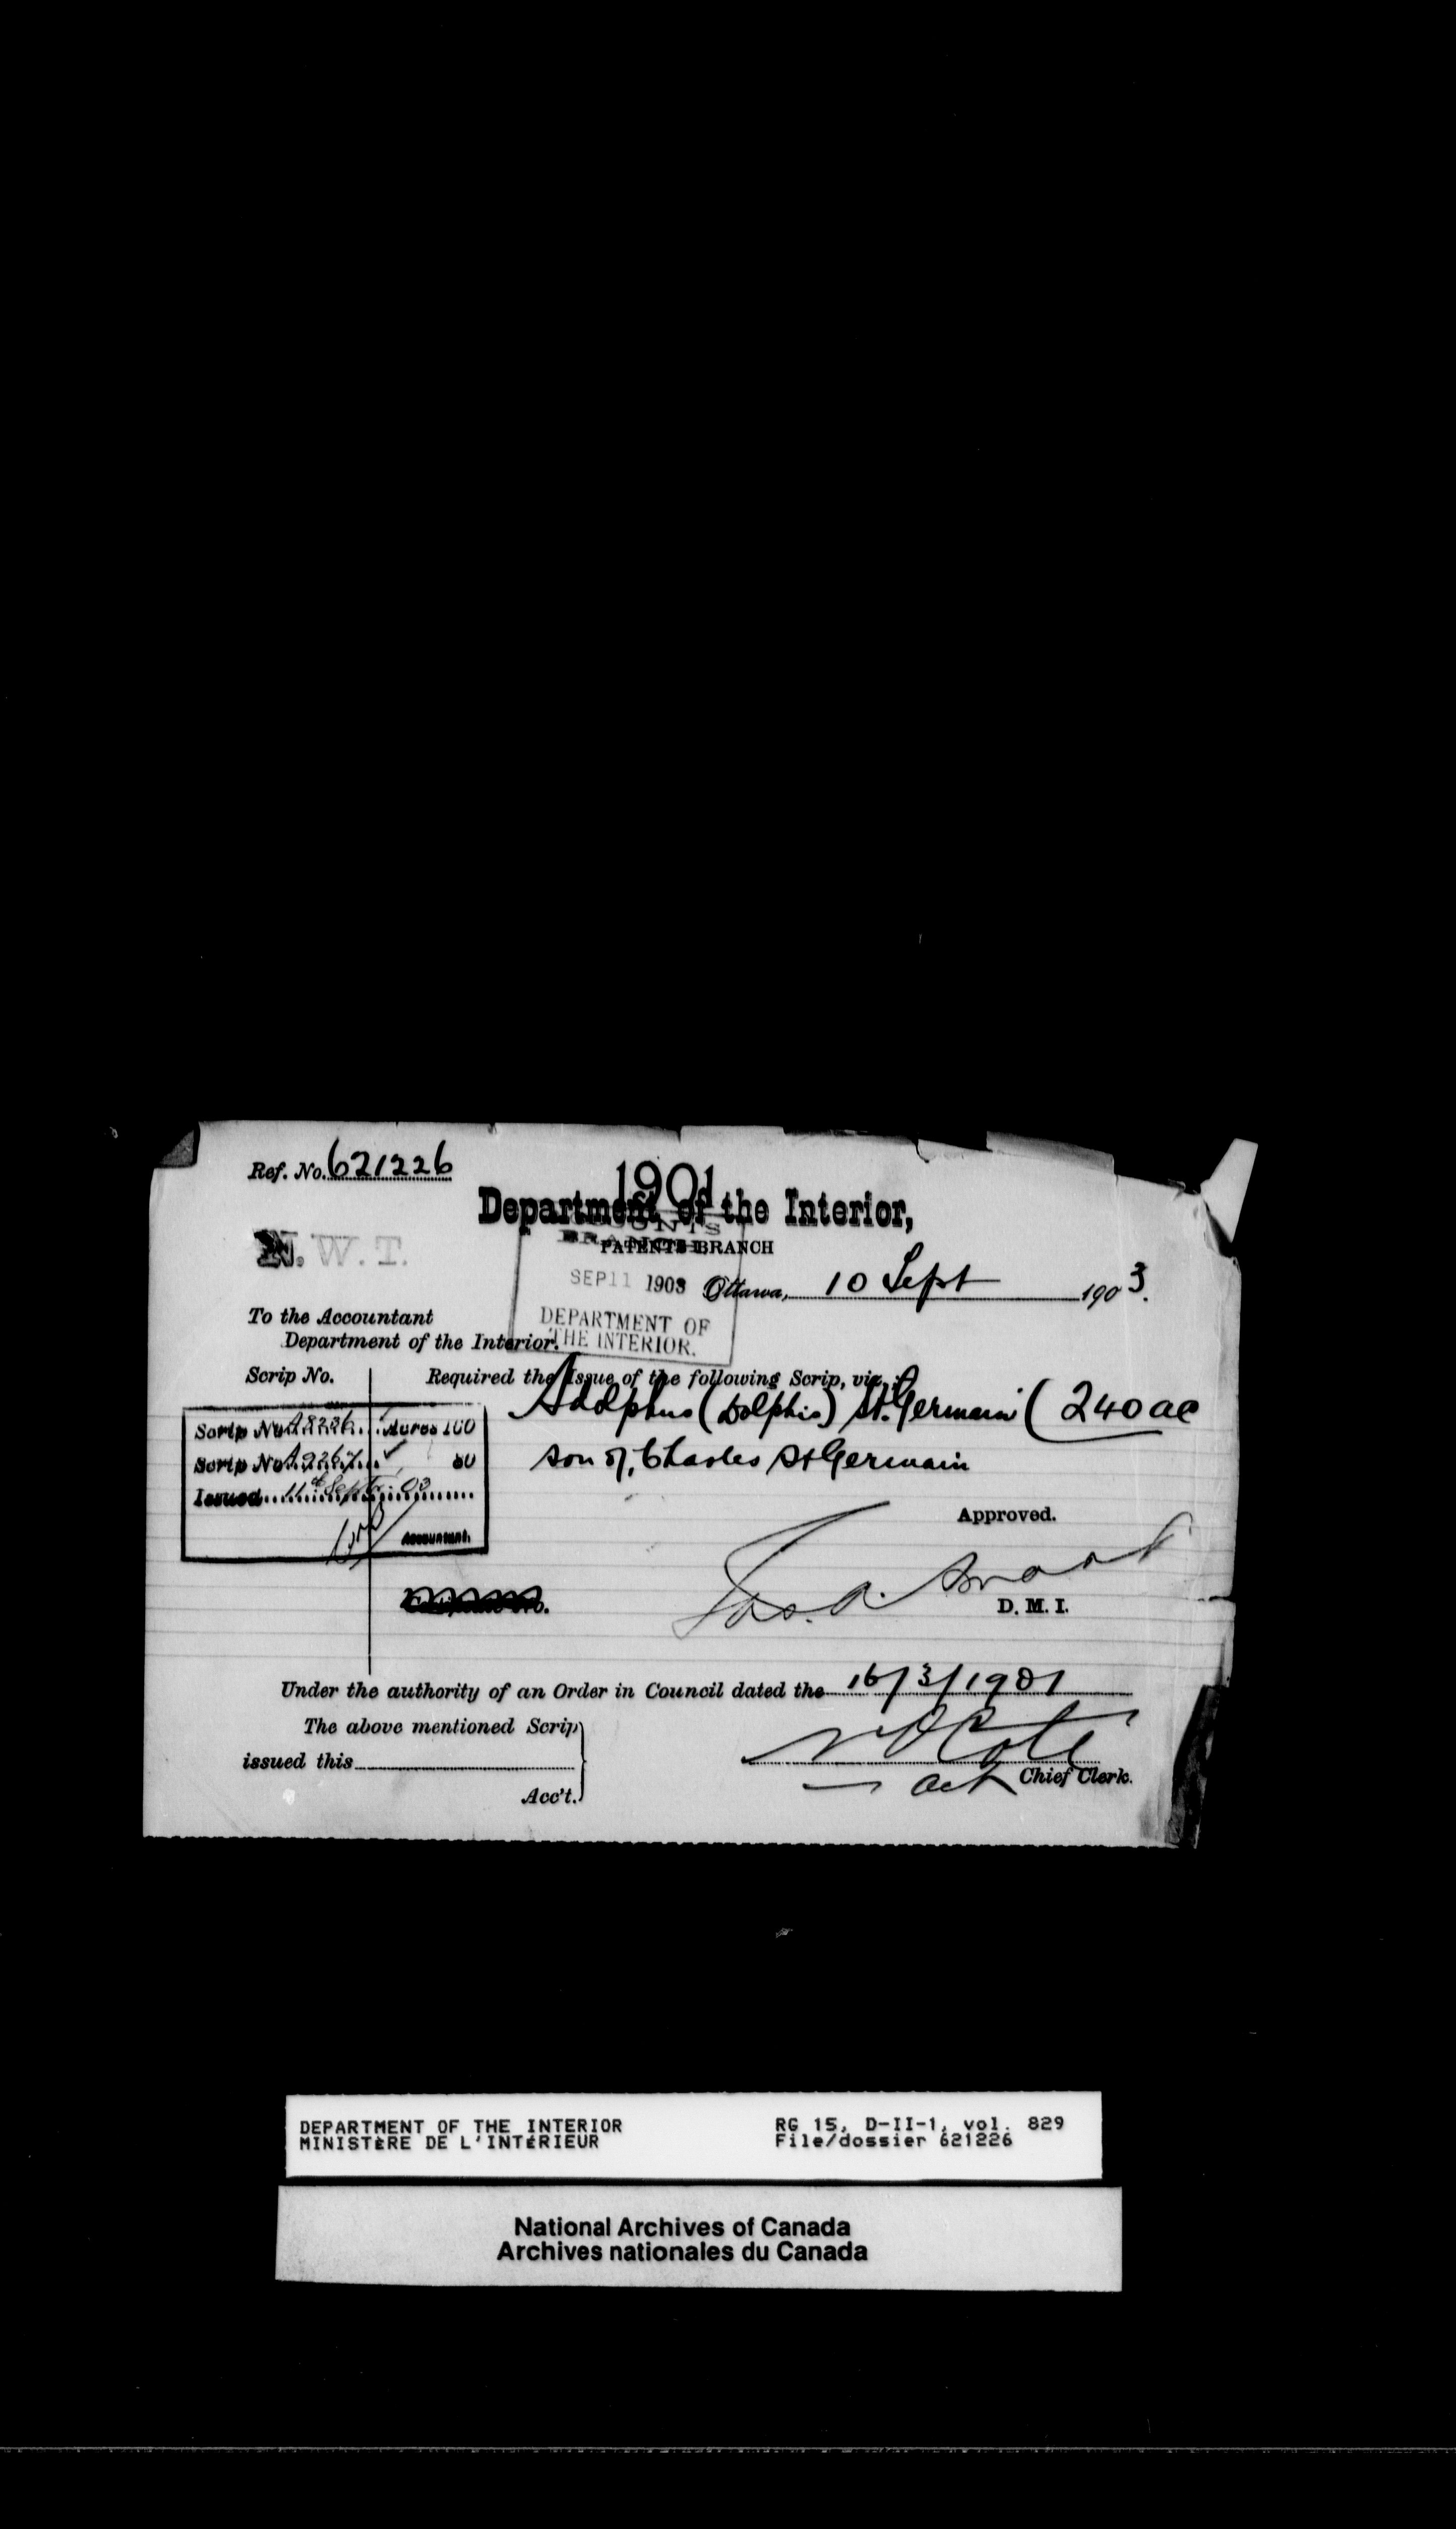 Ref. No. 621226
1901
Department of the Interior,
PATENTS BRANCH
N.W.T.
SEP 11 1903
DEPARTMENT OF
THE INTERIOR.
Ottawa, 10 Sept 1903.
To the Accountant
Department of the Interior.
Scrip No.
Required the Issue of the following Scrip, viz.:
Adolphus (Dolphis) St. Germain (240 ac
son of, Charles St Germain
Scrip No. Acres 160
Scrip No. A9267 80
Issued 11th Sept 03
Accountant.
Approved.
Jas. A. Smart
D. M. I.
Under the authority of an Order in Council dated the 16/3/1901
The above mentioned Scrip
issued this
Acc't.
N O Coté
Act Chief Clerk.
DEPARTMENT OF THE INTERIOR
MINISTÈRE DE L'INTÉRIEUR
RG 15, D-II-1, vol. 829
File/dossier 621226
National Archives of Canada
Archives nationales du Canada